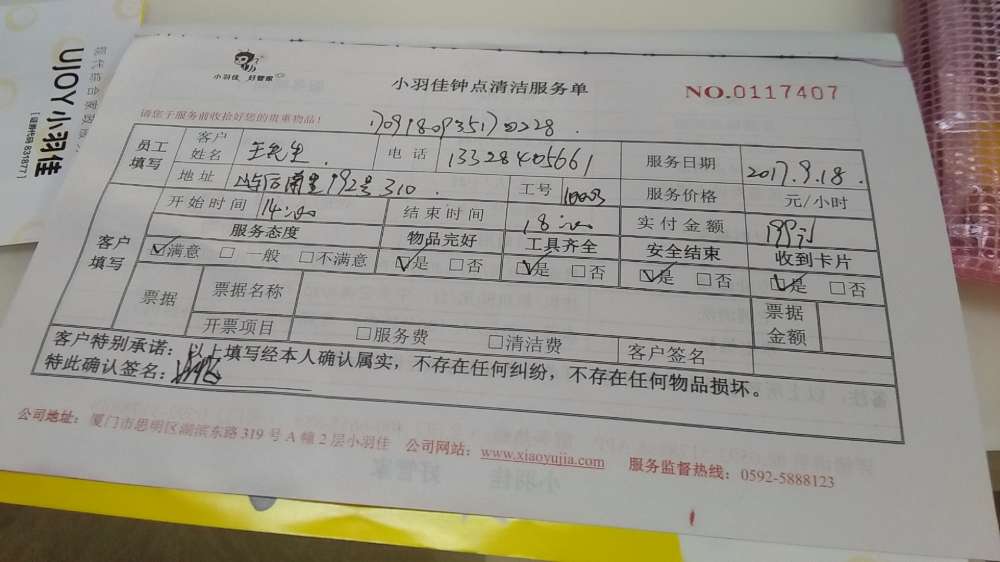 UJOY小羽佳
[证券代码 831877]
小羽佳 好管家
小羽佳钟点清洁服务单
NO.0117407
请您于服务前收拾好您的贵重物品!
员工填写 客户姓名 电话 13328405661 服务日期 2017.9.18.
地址 192号310. 工号 服务价格 元/小时
客户填写 开始时间 14:00 结束时间 18:00 实付金额 199元
服务态度 物品完好 工具齐全 安全结束 收到卡片
☑满意 □一般 □不满意 ☑是 □否 ☑是 □否 ☑是 □否 ☑是 □否
票据 票据名称 票据金额
开票项目 □服务费 □清洁费 客户签名
客户特别承诺:以上填写经本人确认属实,不存在任何纠纷,不存在任何物品损坏。
特此确认签名:
公司地址:厦门市思明区湖滨东路319号A幢2层小羽佳 公司网站:www.xiaoyujia.com 服务监督热线:0592-5888123